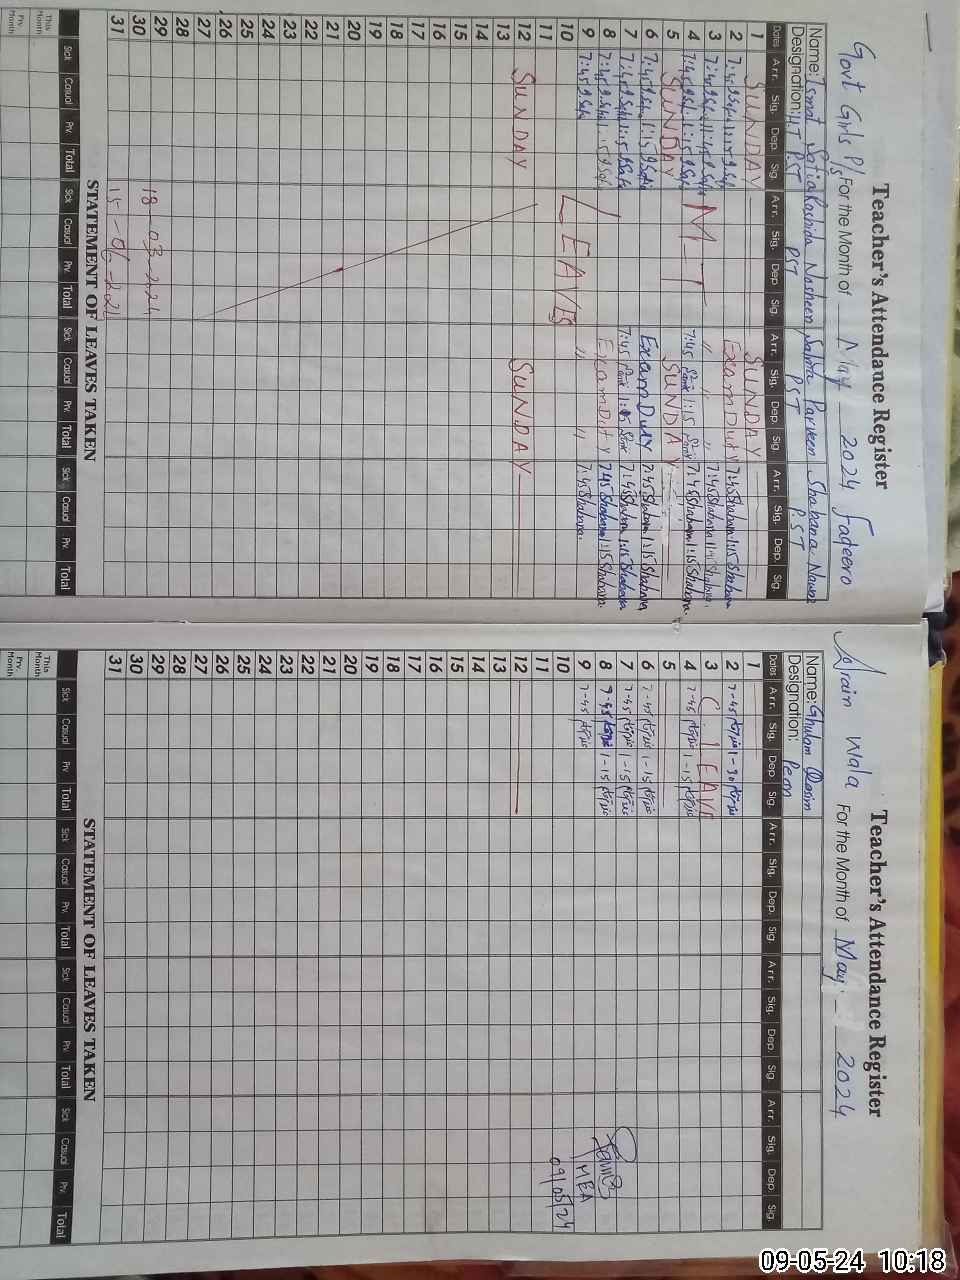 Teacher's Attendance Register
Govt Girls P/S For the Month of May 2024 Fadeero
Name: Ismat Safia Rashida Nosheen Salma Parveen Shabana Nawaz
Designation: H.T PST PST PST P.ST
Dates Arr. Sig. Dep. Sig. Arr. Sig. Dep Sig. Arr. Sig. Dep. Sig Arr. Sig. Dep. Sig.
1 SUNDAY SUNDAY
2 7:45 Exam Duty 7:45 Shabana 1:15 Shabana
3 7:45 " " " 7:45 Shabana 1:15 Shabana
4 7:45 1:15 7:45 1:15 7:45 Shabana 1:15 Shabana
5 SUNDAY SUNDAY
6 7:45 1:15 Exam Duty 7:45 Shabana 1:15 Shabana
7 7:45 1:15 7:45 7:45 Shabana 1:15 Shabana
8 7:45 1:15 Exam Duty 7:45 Shabana 1:15 Shabana
9 7:45 " " 7:45 Shabana
M T LEAVES
10
11
12 SUNDAY SUNDAY
13
14
15
16
17
18
19
20
21
22
23
24
25
26
27
28
29
30 18-03-2024
31
STATEMENT OF LEAVES TAKEN
Sick Casual Prv. Total Sick Casual Prv. Total Sick Casual Prv. Total Sick Casual Prv. Total
This Month
Prv. Month
Teacher's Attendance Register
Arain Wala For the Month of May. 2024
Name: Ghulam Qasim
Designation: Peon
Dates Arr. Sig. Dep Sig. Arr. Sig. Dep. Sig Arr. Sig. Dep. Sig. Arr. Sig. Dep. Sig.
1
2 7-45 1-30
3 C. LEAVE
4 7-45 1-15
5
6 7-45 1-15
7 7-45 1-15
8 7-45 1-15
9 7-45
10
11
12
13
14
15
16
17
18
19
20
21
22
23
24
25
26
27
28
29
30
31
MEA
09/05/24
STATEMENT OF LEAVES TAKEN
Sick Casual Prv Total Sick Casual Prv. Total Sick Casual Prv. Total Sick Casual Prv. Total
This Month
Prv. Month
09-05-24 10:18